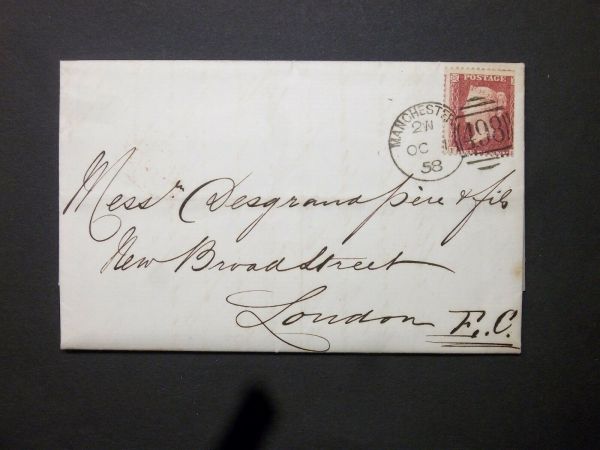 POSTAGE
MANCHESTER
2N
OC
58
498
Messrs Desgrand père & fils
New Broad Street
London E.C.